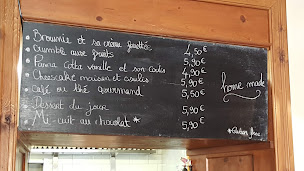 - Brownie et sa crème fouettée 4,50€
- Crumble aux fruits 5,90€
- Panna Cotta vanille et son coulis 4,90€
- Cheesecake maison et coulis 5,90€
- Café ou thé gourmand 5,50€
- Dessert du jour 5,90€
- Mi-cuit au chocolat* 5,90€
home made
*Gluten free